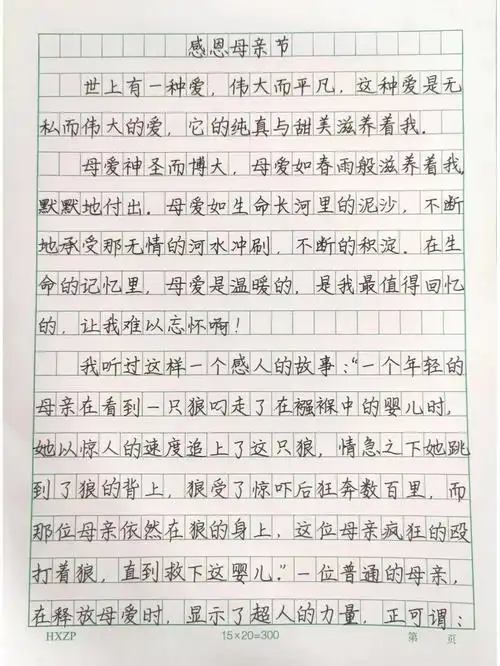 感恩母亲节
世上有一种爱，伟大而平凡，这种爱是无
私而伟大的爱，它的纯真与甜美滋养着我．
母爱神圣而博大，母爱如春雨般滋养着我，
默默地付出．母爱如生命长河里的泥沙，不断
地承受那无情的河水冲刷，不断的积淀．在生
命的记忆里，母爱是温暖的，是我最值得回忆
的，让我难以忘怀啊！
我听过这样一个感人的故事：“一个年轻的
母亲在看到一只狼叼走了在襁褓中的婴儿时，
她以惊人的速度追上了这只狼，情急之下她跳
到了狼的背上，狼受了惊吓后狂奔数百里，而
那位母亲依然在狼的身上，这位母亲疯狂的殴
打着狼，直到救下这婴儿．”一位普通的母亲，
在释放母爱时，显示了超人的力量，正可谓：
HXZP 15×20=300 第 页